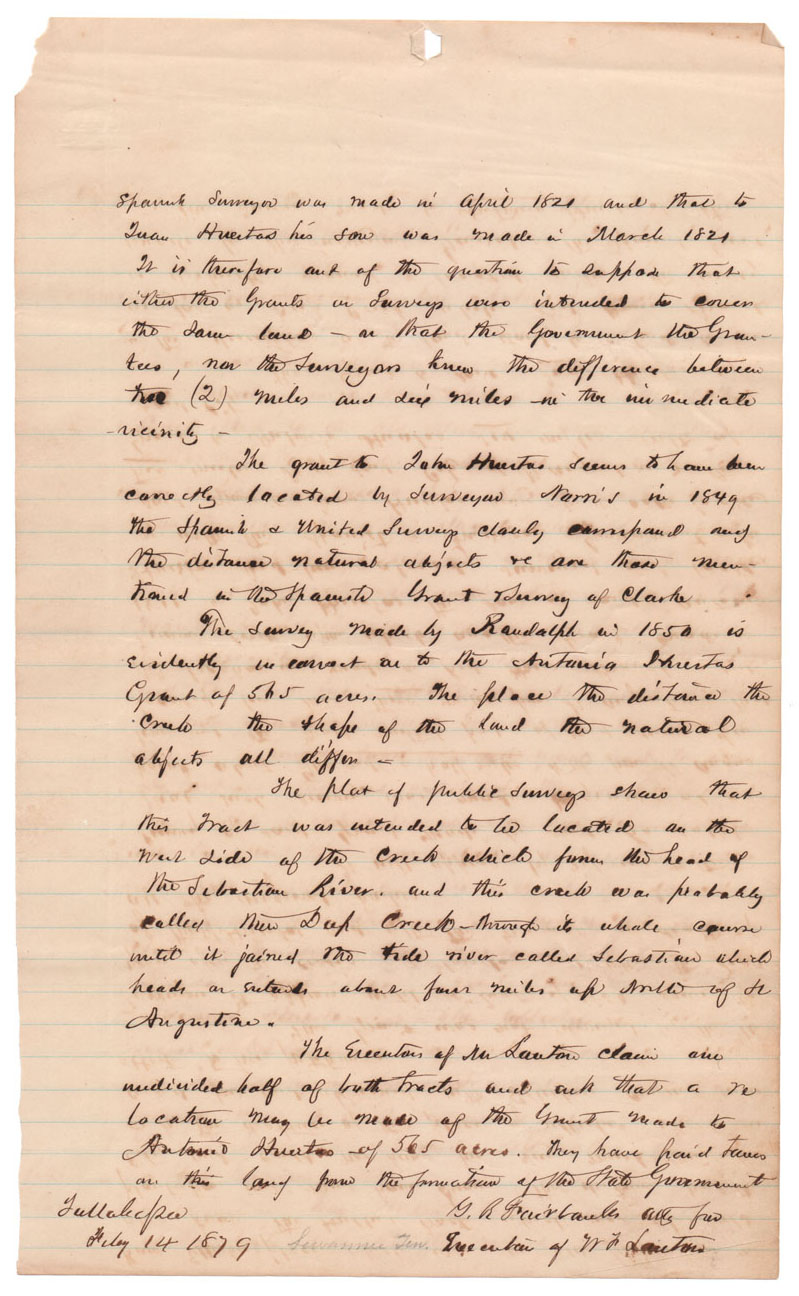 Spanish Surveyor was made in April 1821 and that to
Juan Huertas his son was made in March 1821
It is therefore out of the question to suppose that
either the Grants or Surveys were intended to cover
the same land - or that the Government the Gran-
tees, nor the Surveyors knew the difference between
two (2) miles and six miles in the immediate
vicinity -
The grant to John Huertas seems to have been
correctly located by Surveyor Norris in 1849
the Spanish & United Surveys closely correspond and
the distance natural objects &c are those men-
tioned in the Spanish Grant & Survey of Clarke
The Survey made by Randolph in 1850 is
evidently incorrect as to the Antonio Huertas
Grant of 565 acres. The place the distance the
Creek the shape of the land the natural
objects all differ -
The plat of public Surveys show that
this Tract was intended to be located on the
West side of the Creek which forms the head of
the Sebastian River. and this creek was probably
called then Deep Creek - through its whole course
until it joined the tide river called Sebastian which
heads or extends about four miles up North of St
Augustine.
The Executors of Mr Lanton claim one
undivided half of both Tracts and ask that a re
location may be made of the Grant made to
Antonio Huertas of 565 acres. They have paid taxes
on this land from the formation of the State Government
Tallahassee
G. R Fairbanks atty for
Feby 14 1879
Sewannee Ten.
Executors of W F Lanton